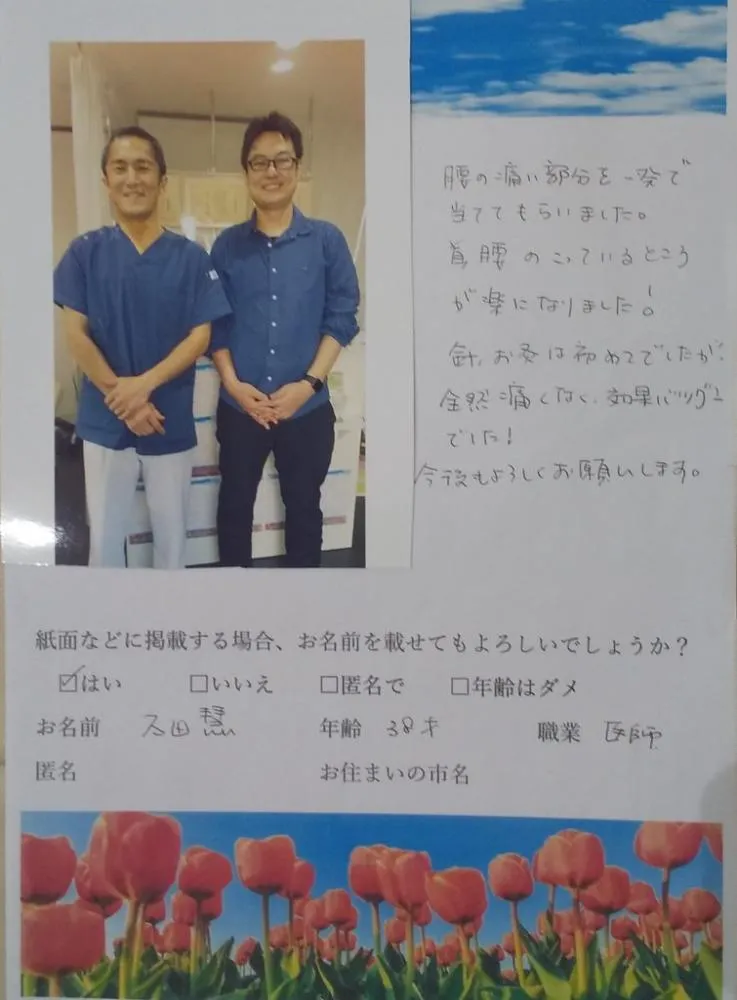 腰の痛い部分を一発で
当ててもらいました。
首腰のこっているところ
が楽になりました！
針、お灸は初めてでしたが、
全然痛くなく、効果バツグン
でした！
今後もよろしくお願いします。
紙面などに掲載する場合、お名前を載せてもよろしいでしょうか？
☑はい □いいえ □匿名で □年齢はダメ
お名前 太田 慧 年齢 38才 職業 医師
匿名 お住まいの市名